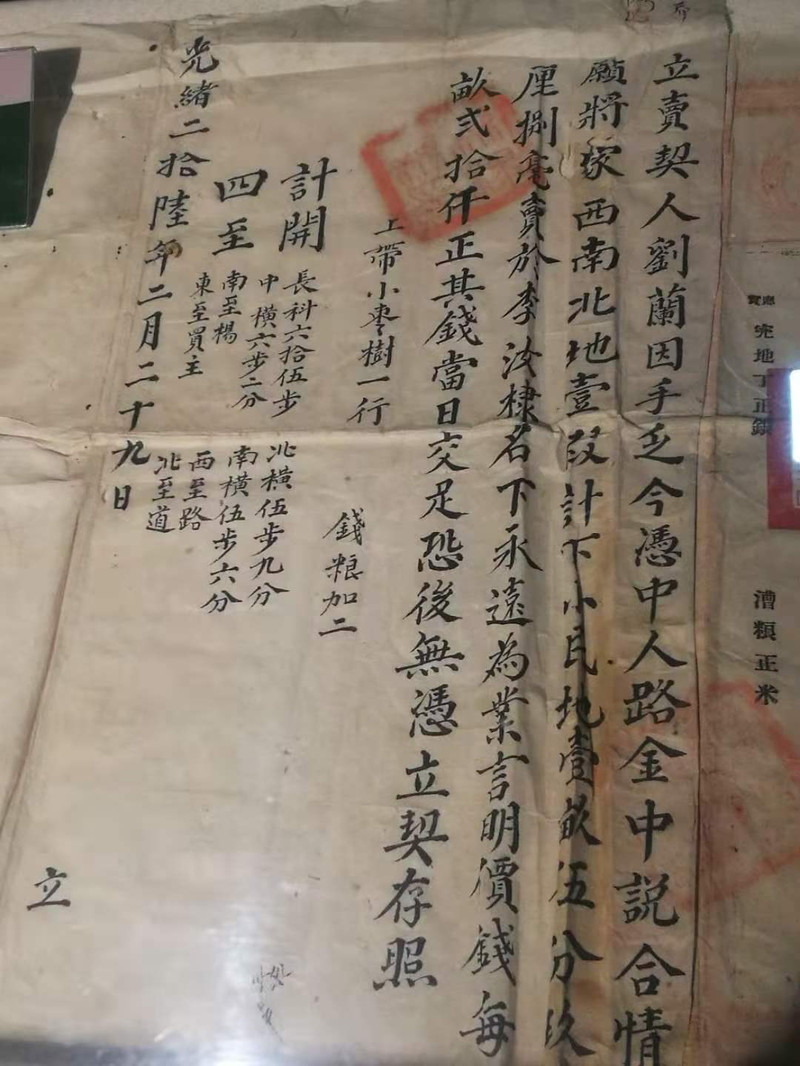 完地丁正銀
漕糧正米
立賣契人劉蘭因手乏今憑中人路金中説合情
願將家西南北地壹段計下小民地壹畝伍分玖
厘捌毫賣於李汝棣名下永遠為業言明價錢每
畝弍拾仟正其錢當日交足恐後無憑立契存照
上帶小棗樹一行
錢粮加二
計開
長科六拾伍步
北橫伍步九分
中橫六步二分
南橫伍步六分
四至
南至楊
西至路
東至買主
北至道
光緒二拾陸年二月二十九日
立